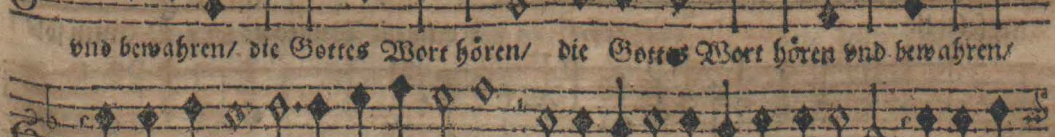 vnd bewahren/ die Gottes Wort hören/ die Gottes Wort hören vnd bewahren/